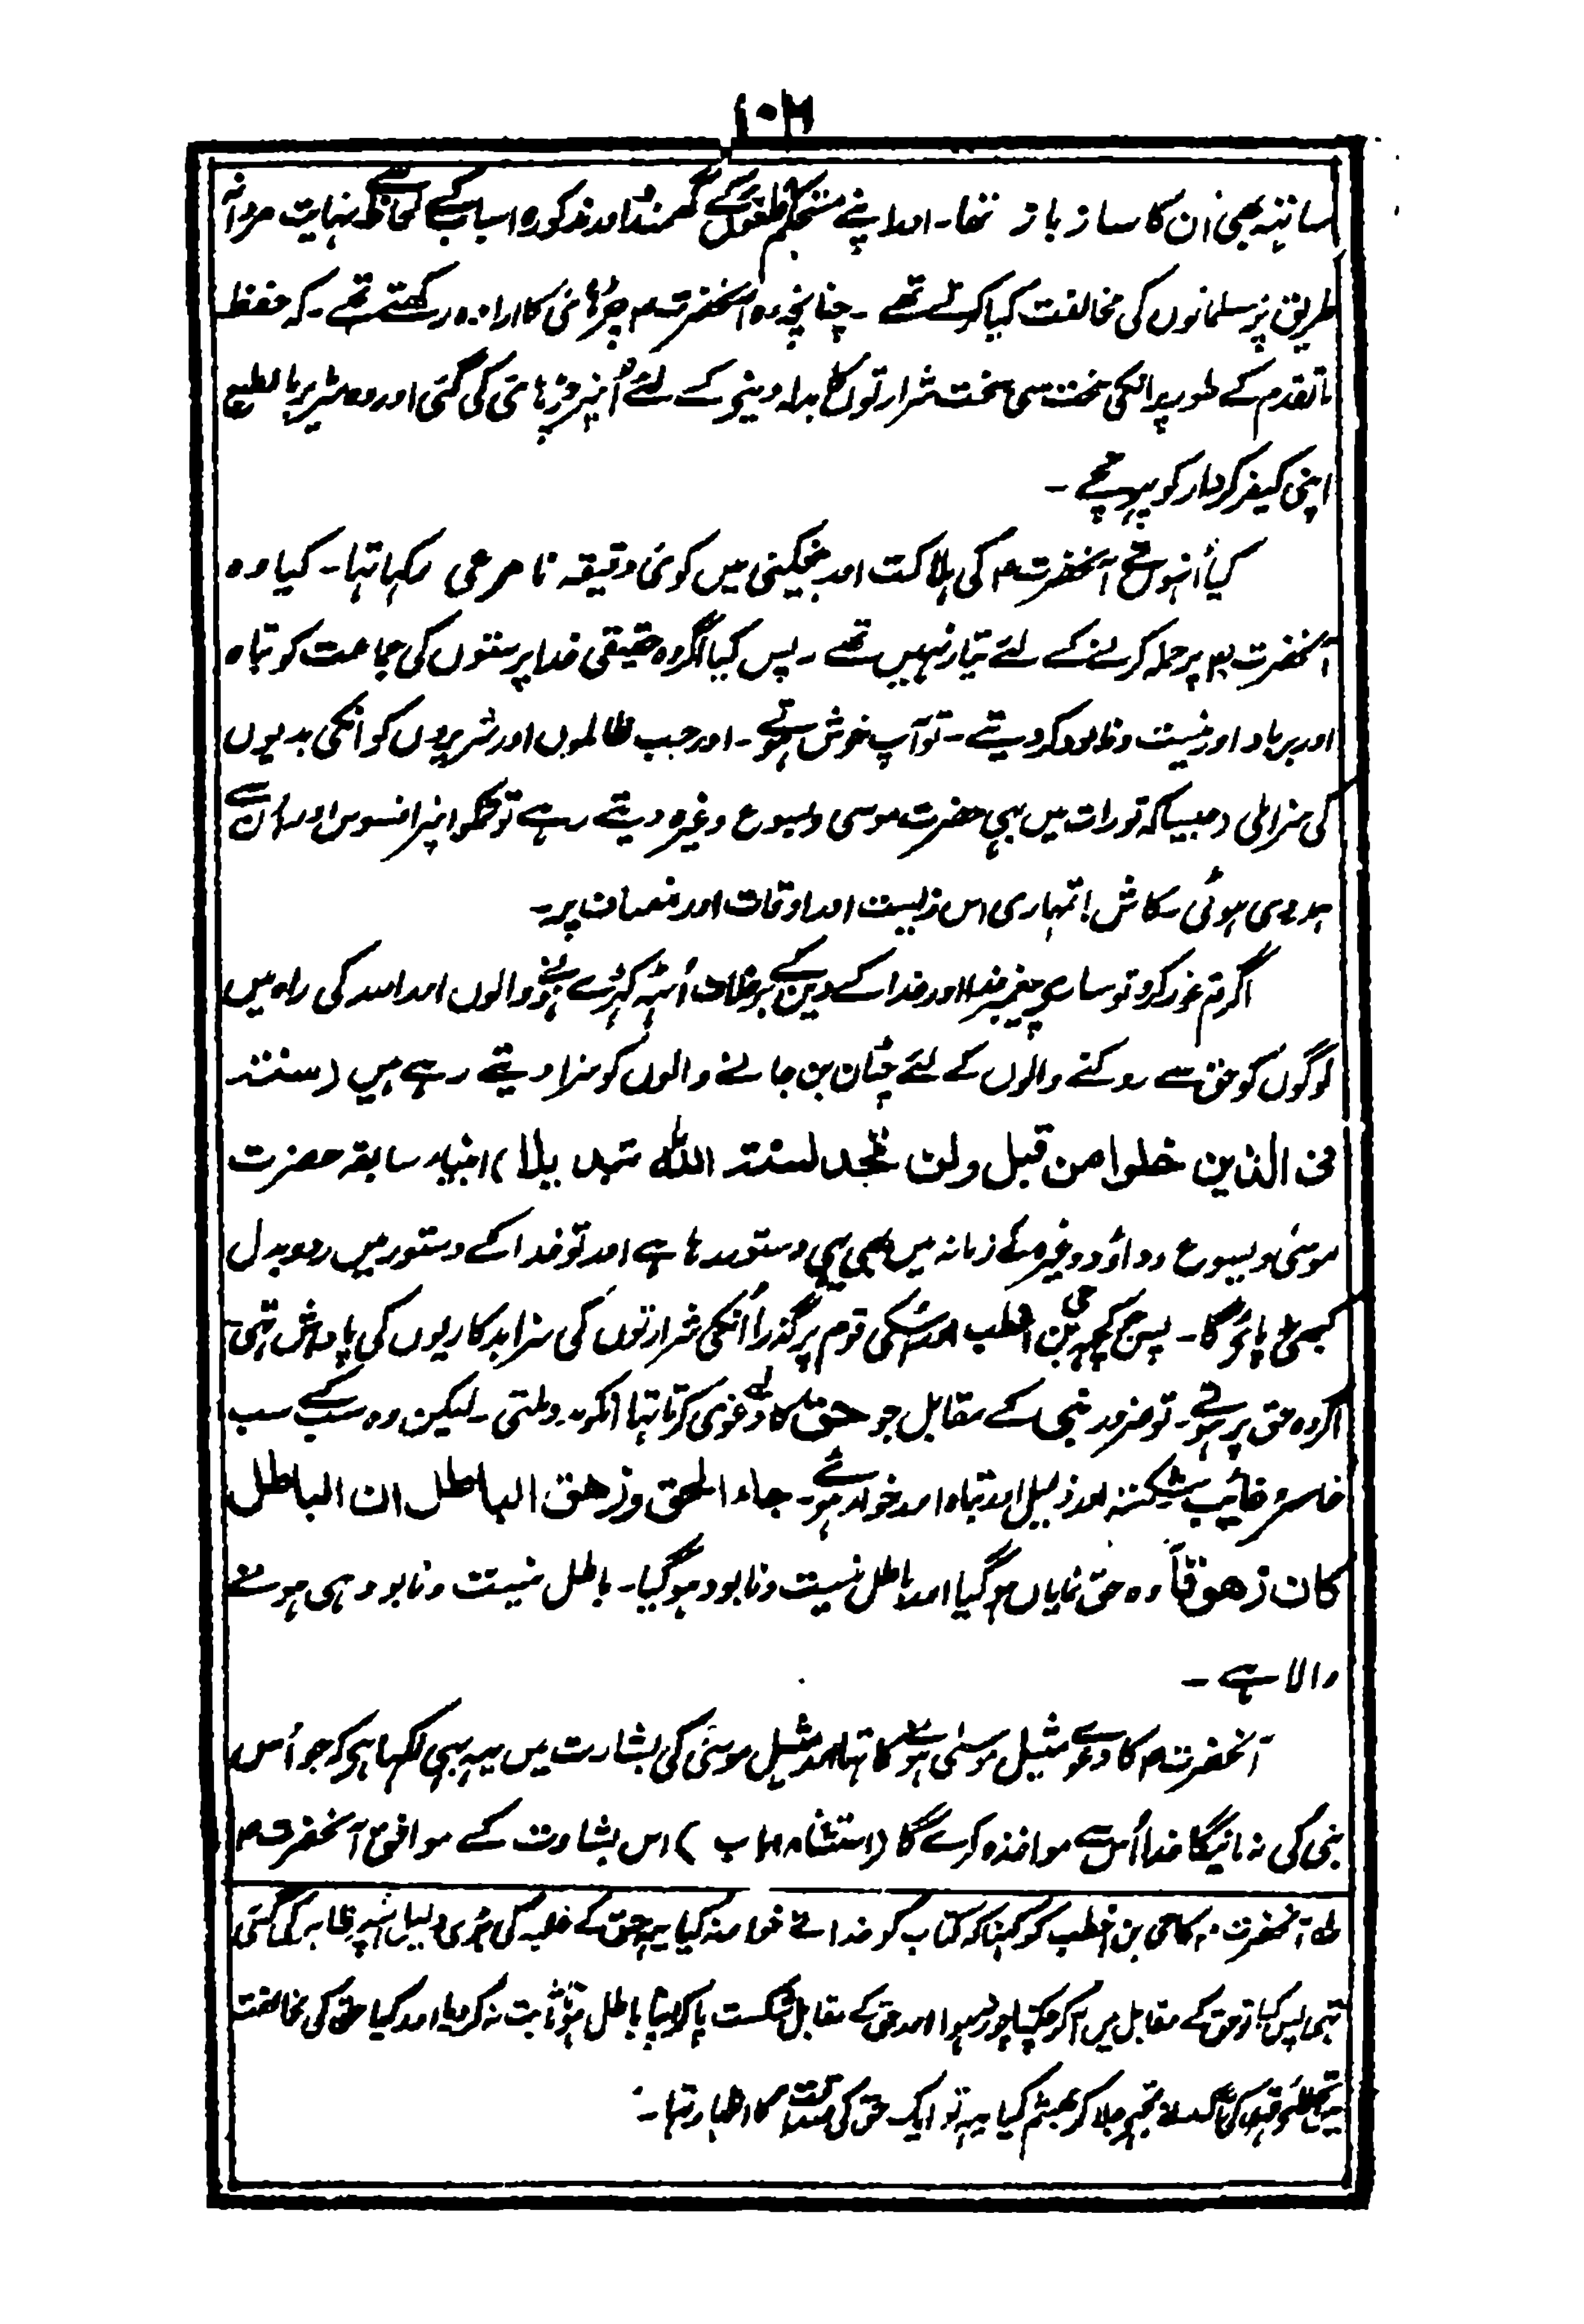 ۱۰۲
ساتہہ بھی ان کا ساز باز تھا۔ اور اپنے مستحکم قلعوں کے گھمنڈ اور مذکورہ اسباب کے لحاظ سے نہایت مردانہ
طریق پر مسلمانوں کی مخالفت کیا کرتے تھے۔ چنانچہ وہ آنحضرت م پر چڑہائی کا ارادہ رکھتے تھے۔ کہ حفظ
ماتقدم کے طور پر انکی سخت سی سخت شرارتوں کا بدلہ دینے کے لئے اُنپر چڑہائی کی گئی اور وہ شریر بالطبع
اپنی کیفر کردار کو پہنچے۔
کیا اُنہوں نے آنحضرت م کی ہلاکت اور بیخکنی میں کوئی دقیقہ نامرعی رکہا تہا۔ کیا وہ
آنحضرت م پر حملہ کرنے کے لئے تیار نہیں تھے۔ پس کیا اگر وہ حقیقی خدا پرستوں کی جماعت کو تباہ
اور برباد اور نیست و نابود کر دیتے۔ تو آپ خوش ہوتے۔ اور جب ظالموں اور شریروں کو انکی بدیوں
کی سزا ملی (جیسا کہ تورات میں بہی حضرت موسی و یسوع وغیرہ دیتے رہے تو تمکو انپر افسوس اور اُن سے
ہمدردی ہوئی۔ کاش! تمہاری اس زیست اور اوقات اور انصاف پر۔
اگر تم غور کرو تو سارے پیغمبر خدا اور خدا کے دین کے برخلاف اُٹہہ کہڑے ہونے والوں اور اللہ کی راہ میں
لوگوں کو حق سے روکنے والوں کے لئے چٹان بن جانے والوں کو سزا دیتے رہے ہیں (سنتہ
فی الذین خلوا من قبل ولن تجد لسنتہ اللہ تبدیلا) انبیاء سابقہ حضرت
موسیٰ و یسوع و داؤد وغیرہ کے زمانہ میں بھی یہی دستور رہا ہے اور تو خدا کے دستور میں ردوبدل
کبھی نہ پائیگا۔ پس جو کچہہ حی بن اخطب اور اسکی قوم پر گذرا اُنکی شرارتوں کی سزا بدکاریوں کی پاداش تہی
اگر وہ حق پر ہوتے۔ تو ضرور نبی کے مقابل جو حق کا دعوٰی کرتا تہا انکو مدد ملتی۔ لیکن وہ سب کے سب
خاسر و خائب شکستہ اور ذلیل اور تباہ اور خوار ہوئے۔ جاء الحق وزھق الباطل ان الباطل
کان زھوقاً وہ حق نمایاں ہو گیا اور باطل نیست و نابود ہو گیا۔ باطل نیست و نابود ہی ہونے
والا ہے۔
آنحضرت م کا دعوے مثیل موسیٰ ہونے کا تہا اور مثیل موسیٰ کی بشارت میں یہہ بہی لکہا ہی کہ جو اُس
نبی کی نہ مانیگا خدا اُس سے مواخذہ کرے گا (استثنا ۱۸ ب) اس بشارت کے موافق آنحضرت م
آنحضرت م کا حی بن اخطب کو کہنا کہ کتاب کو خدا نے خوار نہ کیا یہہ حق کے غلبہ کی بڑی دلیل اُسپر ظاہر کی گئی
تہی پس کیا تو حق کے مقابل میں آکر چکنا چور نہ ہوا اور حق کے مقابل شکست پا کر اپنا باطل ہونا ثابت نہ کر دیا اور کیا حق کی مخالفت
تجھے جلا کر بھسم کیا یہہ تو ایک حق کی صداقت کا اظہار تہا۔